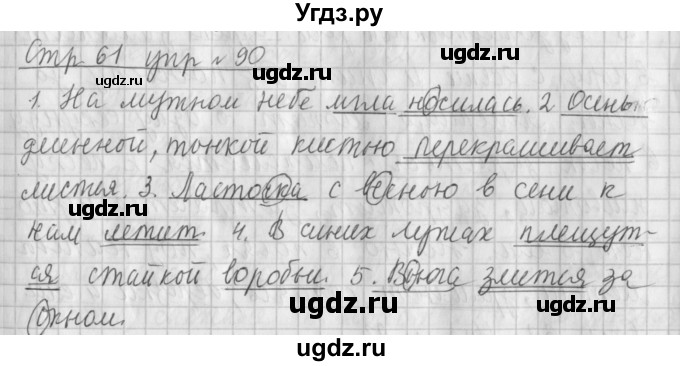 Угдз.ру
Стр 61 упр № 90
ugdz.ru ugdz.ru
1. На мутном небе мгла носилась. 2 Осень
ugdz.ru
длинной, тонкой кистью перекрашивает
листья. 3. Ласточка с весною в сени к
ugdz.ru ugdz.ru
нам летит. 4. В синих лужах плещут-
ugdz.ru
ся стайкой воробьи. 5. Вьюга злится за
ugdz.ru ugdz.ru
окном.
ugdz.ru